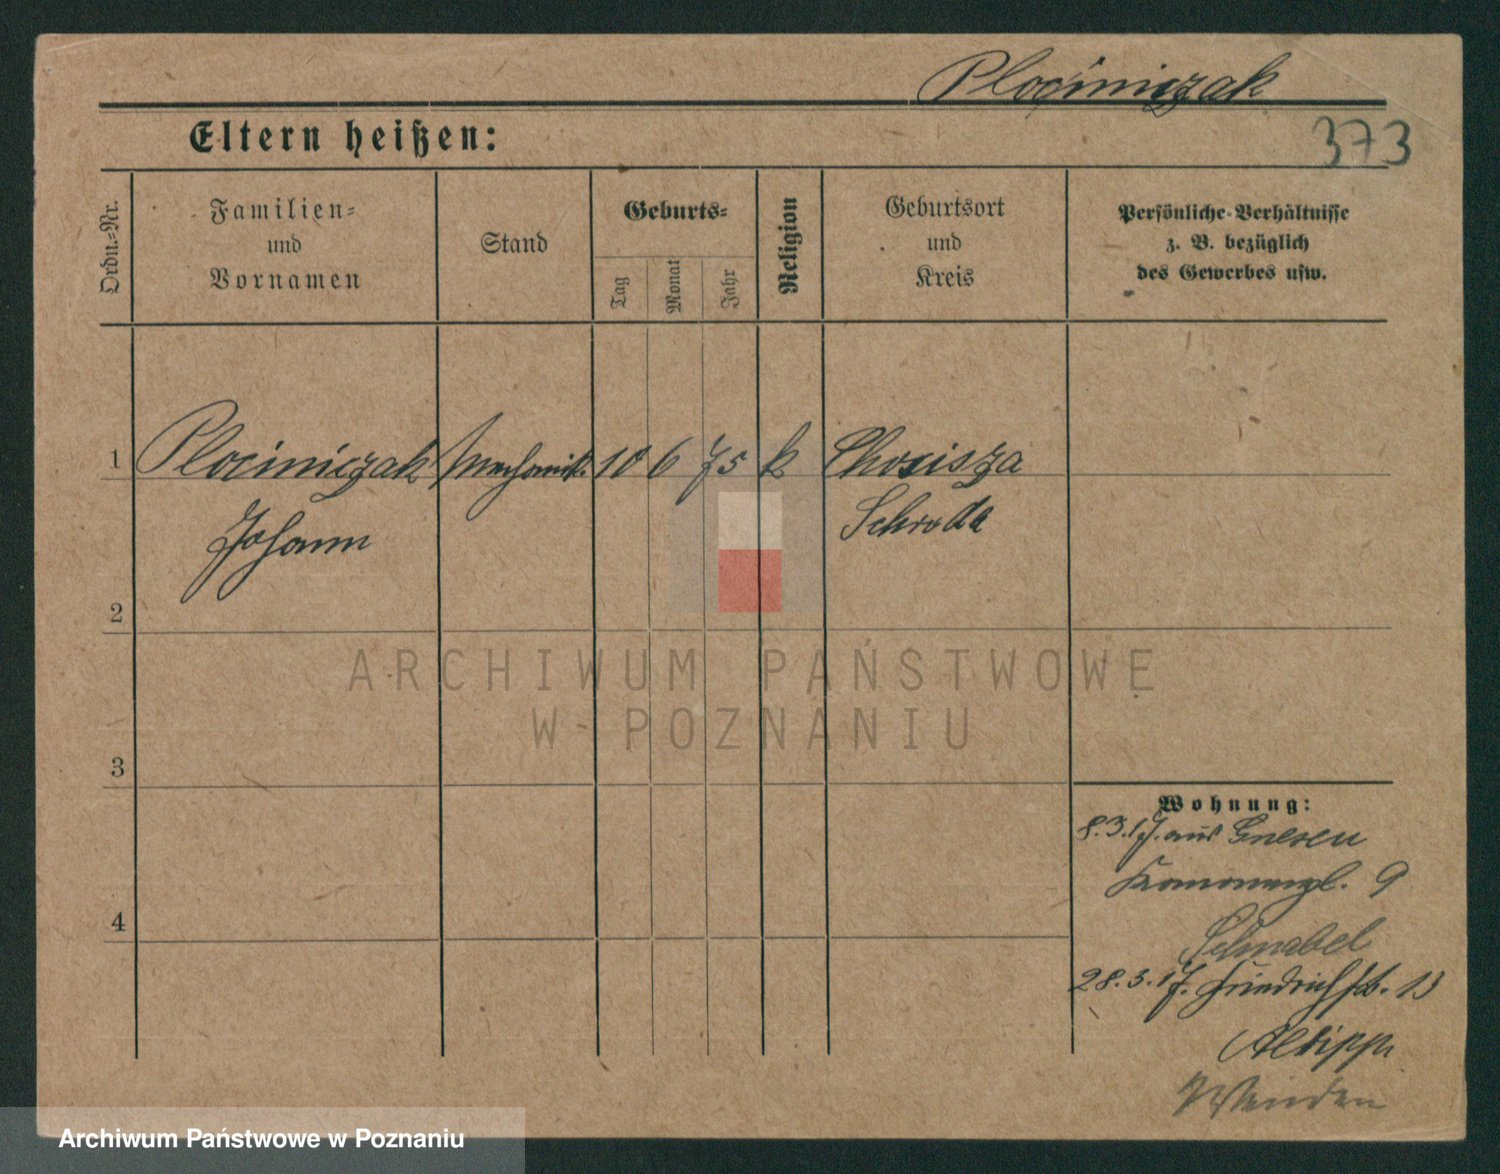 Plociniczak
373
Eltern heißen:
Ordn.-Nr.
Familien-
und
Vornamen
Stand
Geburts-
Tag
Monat
Jahr
Religion
Geburtsort
und
Kreis
Persönliche Verhältnisse
z. B. bezüglich
des Gewerbes usw.
1 Plociniczak Mechanik. 10 6 75 k Chocisza
Johann Schroda
2
3
4
ARCHIWUM PAŃSTWOWE
W POZNANIU
Wohnung:
8.3.17. aus Gnesen
9
Schnabel
28.3.17. Friedrichstr. 13
Archiwum Państwowe w Poznaniu